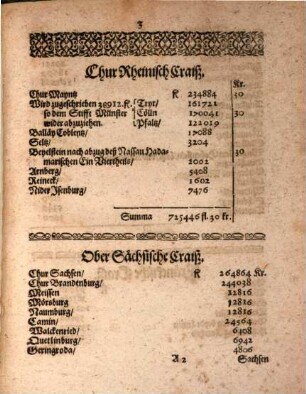 3
Chur Rheinisch Craiß.
Kr.
Chur Mayntz fl 234884 10
Wird zugeschrieben 38912.fl. Tryr/ 161721
so dem Stifft Münster Cölln 170041 30
wider abzuziehen. Pfaltz/ 122019
Balläy Coblentz/ 17088
Seltz/ 3204
Beyelstein nach abzug deß Nassau Hada- 40
marischen Ein Viertheils/ 1001
Arnberg/ 5408
Reineck/ 1602
Nider Isenburg/ 7476
Summa 725446 fl. 30 kr.
Ober Sächsische Craiß.
Chur Sachsen/ fl 264864 Kr.
Chur Brandenburg/ 244038
Meissen 12816
Mörsburg 12816
Naumburg/ 12816
Camin/ 24564
Walckenried/ 6408
Quetlinburg/ 6942
Geringroda/ 4806
A 2 Sachsen